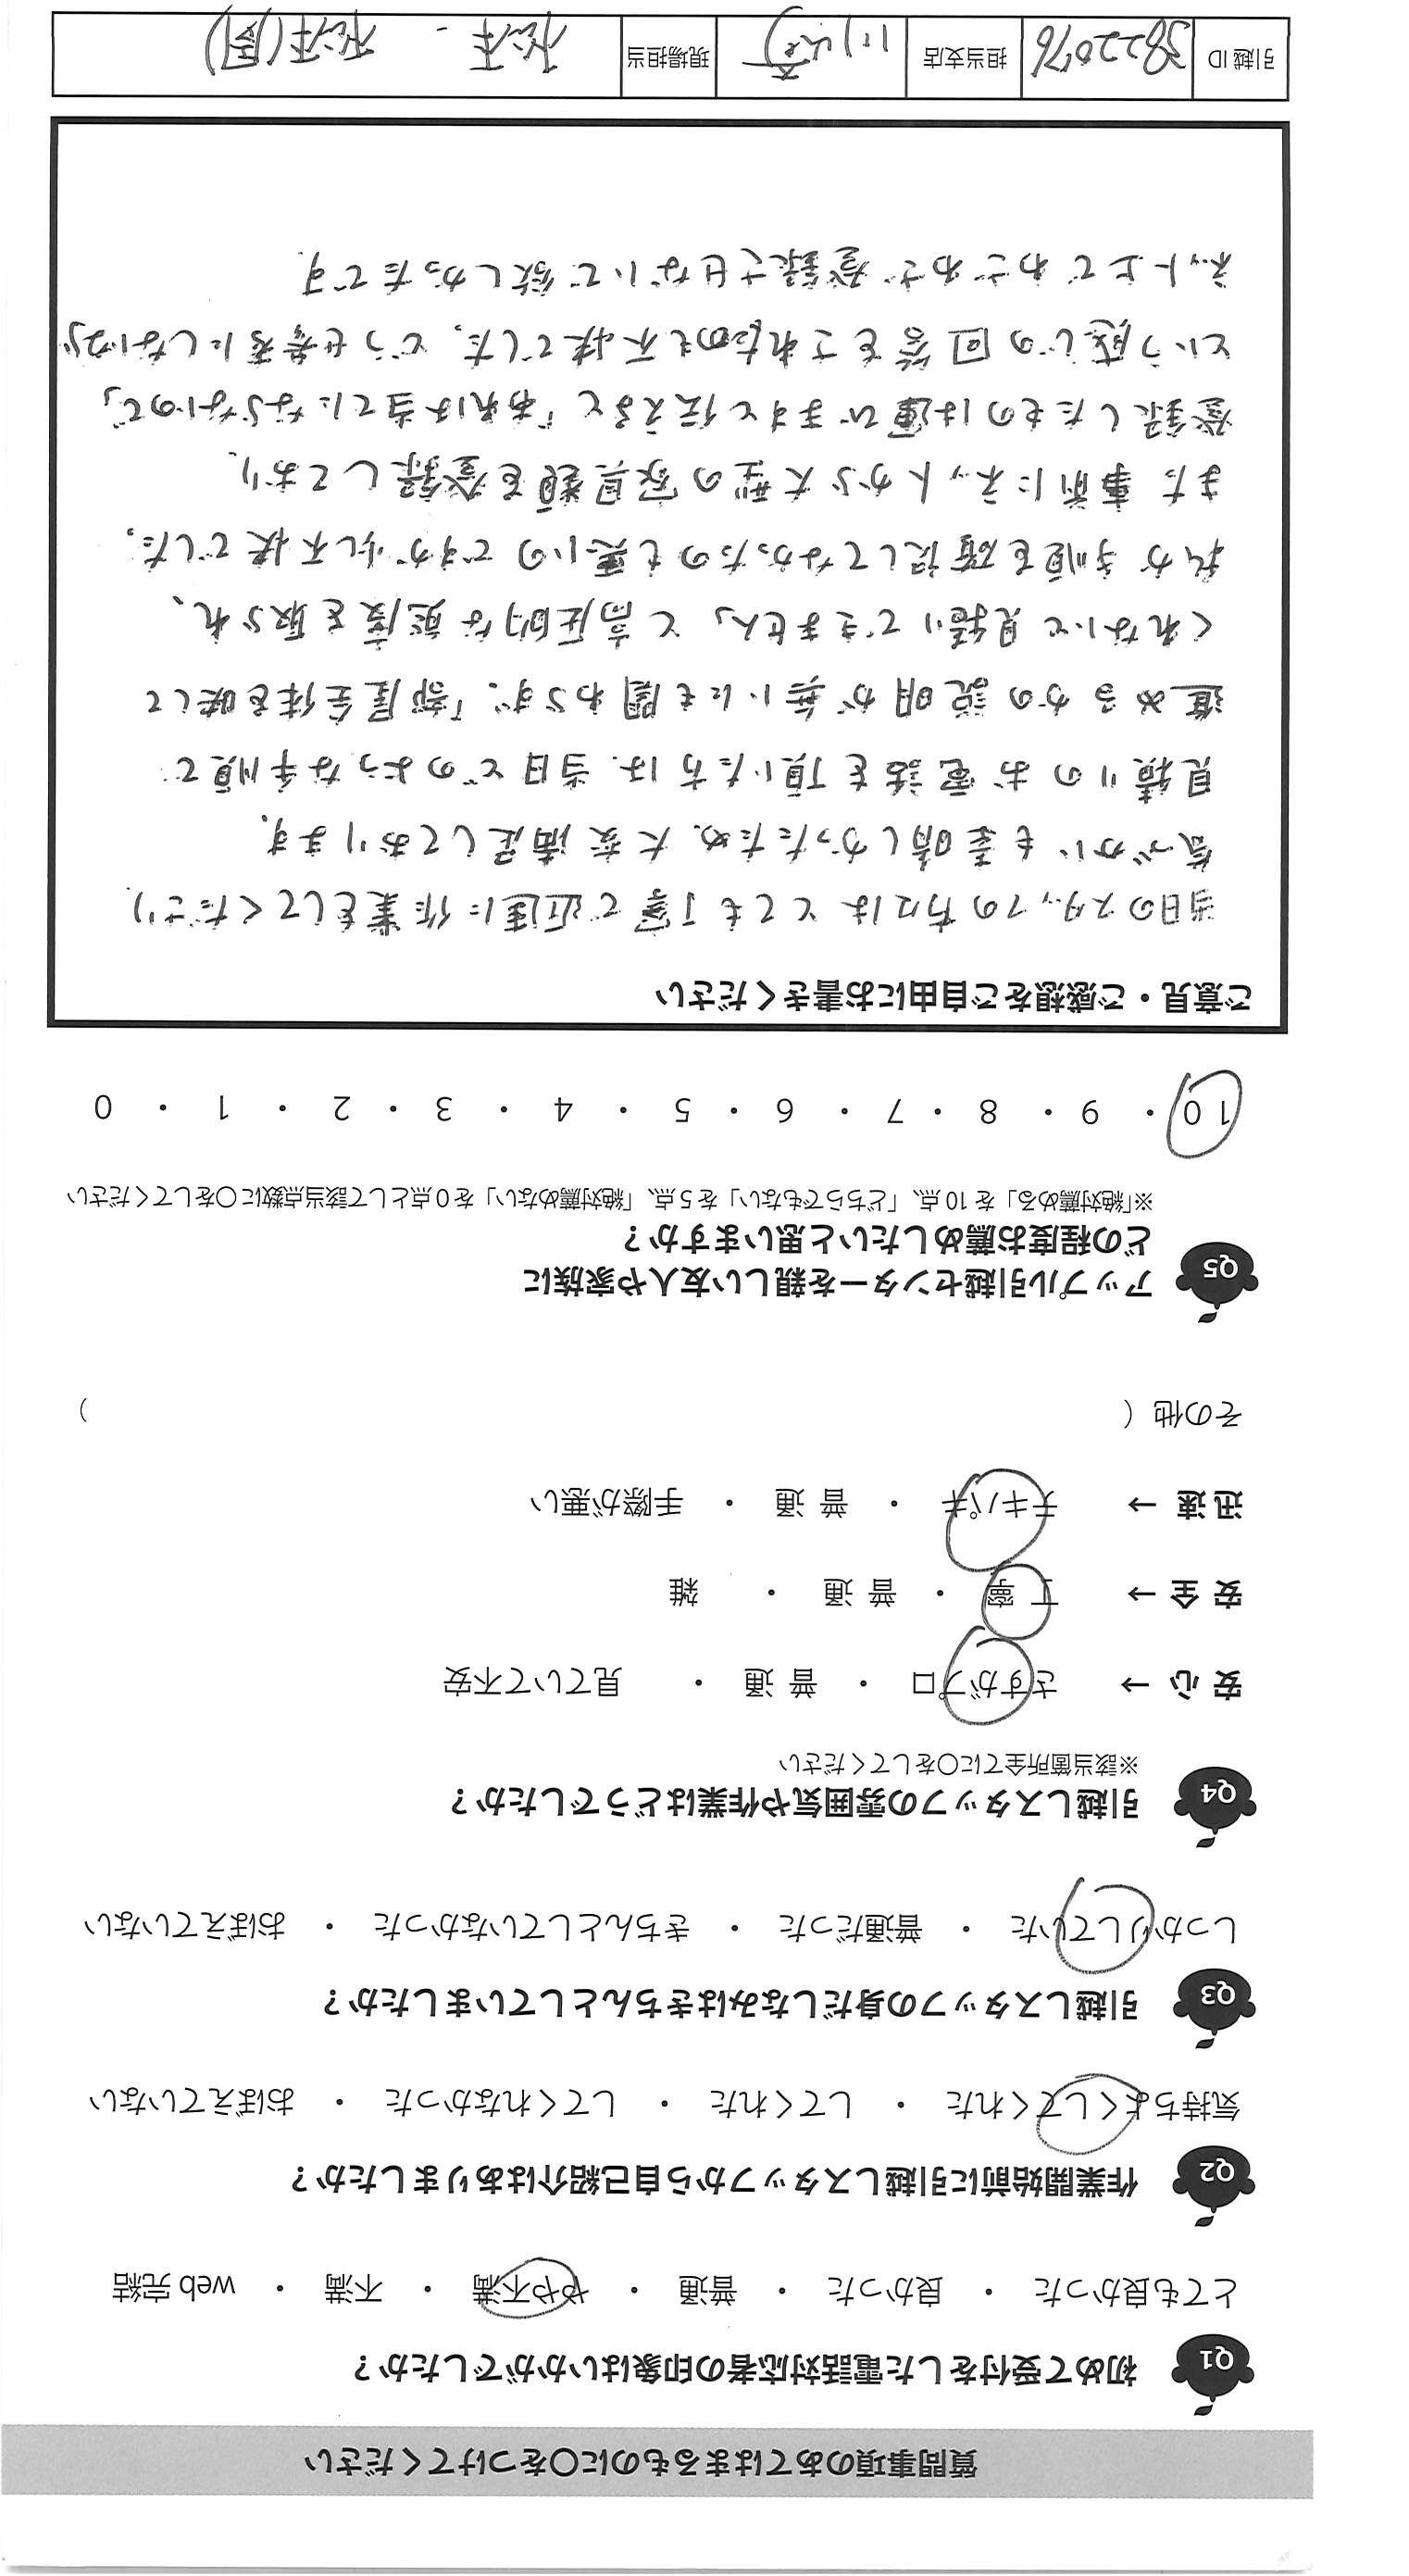 質問事項のあてはまるものに〇をつけてください
Q1 初めて受付をした電話対応者の印象はいかがでしたか？
とても良かった ・ 良かった ・ 普通 ・ やや不満 ・ 不満 ・ web 完結
Q2 作業開始前に引越しスタッフから自己紹介はありましたか？
気持ちよくしてくれた ・ してくれた ・ してくれなかった ・ おぼえていない
Q3 引越しスタッフの身だしなみはきちんとしていましたか？
しっかりしていた ・ 普通だった ・ きちんとしていなかった ・ おぼえていない
Q4 引越しスタッフの雰囲気や作業はどうでしたか？
※該当箇所全てに〇をしてください
安 心 → さすがプロ ・ 普 通 ・ 見ていて不安
安 全 → 丁 寧 ・ 普 通 ・ 雑
迅 速 → テキパキ ・ 普 通 ・ 手際が悪い
その他（ ）
Q5 アップル引越センターを親しい友人や家族に
どの程度お薦めしたいと思いますか？
※「絶対薦める」を 10 点、「どちらでもない」を 5 点、「絶対薦めない」を 0 点として該当点数に〇をしてください
10 ・ 9 ・ 8 ・ 7 ・ 6 ・ 5 ・ 4 ・ 3 ・ 2 ・ 1 ・ 0
ご意見・ご感想をご自由にお書きください
当日のスタッフの方々はとても丁寧で迅速に作業をしてくださり
気づかいも素晴しかったため、大変満足しております。
見積りのお電話を頂いた方は、当日どのような手順で
進めるかの説明が無いにも関わらず、「部屋全体を映して
くれないと見積りできません」と高圧的な態度を取られ、
私が手順を確認してなかったのも悪いのですが少し不快でした。
また事前にネットから大型の家具類を登録しており、
登録したものは運びますと伝えると「あれは当てにならないので」
という感じの回答をされたのも不快でした。どうせ参考にしないなら
ネット上でわざわざ登録させないで欲しかったです。
引越 ID 3822076 担当支店 川崎 現場担当 松本 ・ 松本(周)